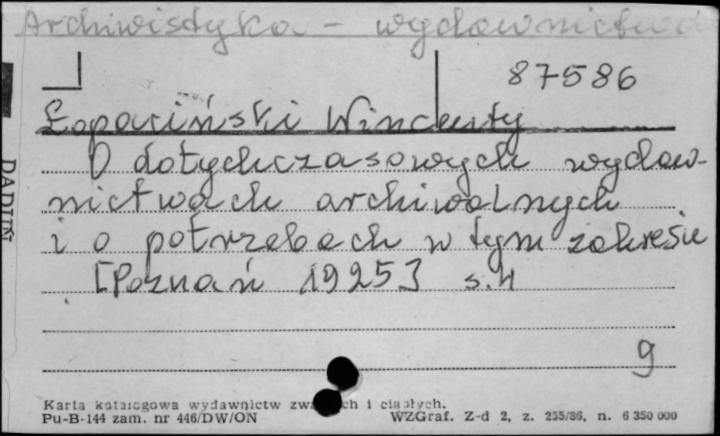 Archiwistyka - wydawnictwa
87586
Łopaciński Wincenty
O dotychczasowych wydaw-
nictwach archiwalnych
i o potrzebach w tym zakresie
[Poznań 1925] s.4
9
Karta katalogowa wydawnictw zwartych i ciągłych.
Pu-B-144 zam. nr 446/DW/ON WZGraf. Z-d 2, z. 255/86, n. 6 350 000